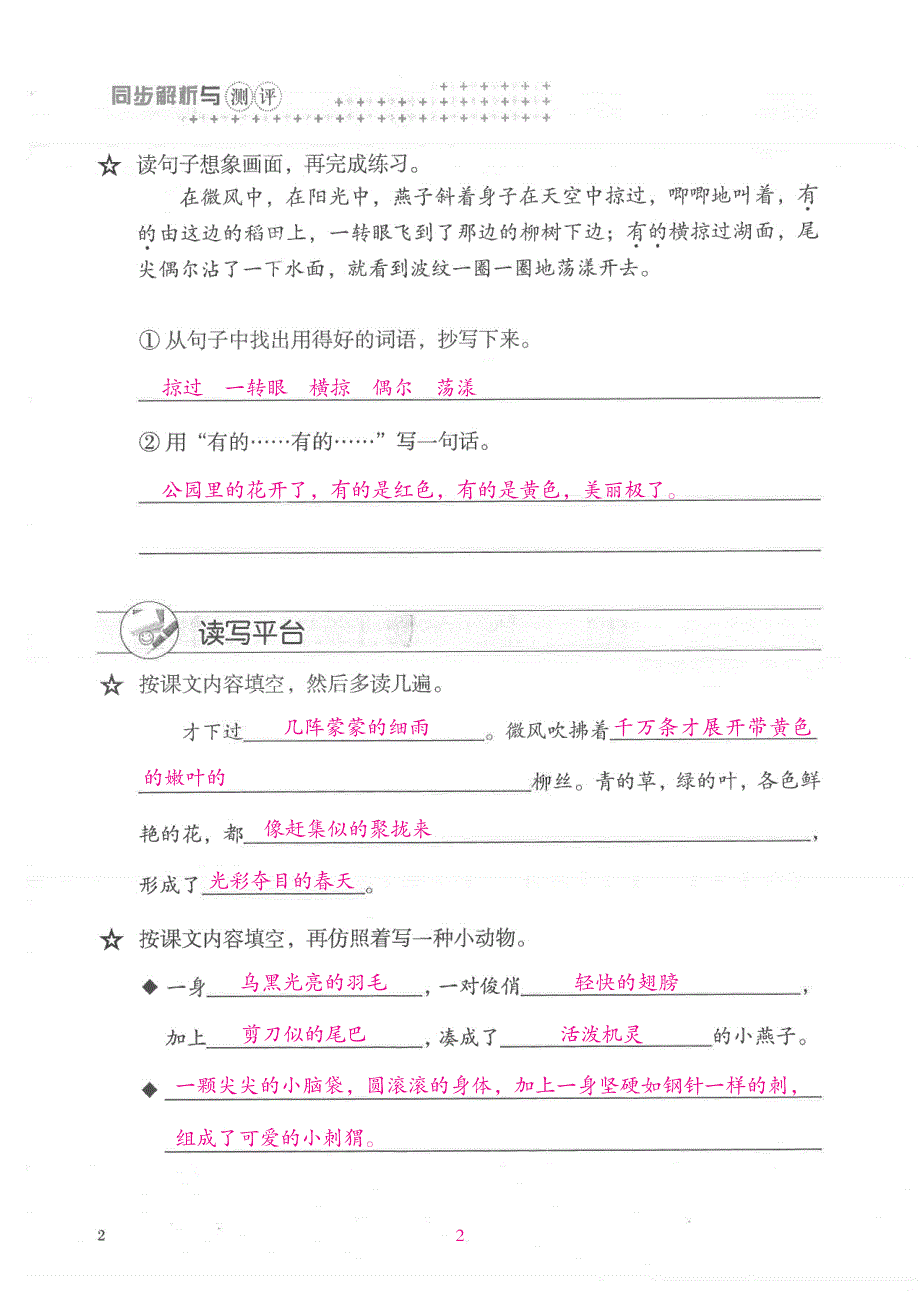 同步解析与测评
☆ 读句子想象画面，再完成练习。
在微风中，在阳光中，燕子斜着身子在天空中掠过，唧唧地叫着，有
的由这边的稻田上，一转眼飞到了那边的柳树下边；有的横掠过湖面，尾
尖偶尔沾了一下水面，就看到波纹一圈一圈地荡漾开去。
① 从句子中找出用得好的词语，抄写下来。
掠过 一转眼 横掠 偶尔 荡漾
② 用“有的……有的……”写一句话。
公园里的花开了，有的是红色，有的是黄色，美丽极了。
读写平台
☆ 按课文内容填空，然后多读几遍。
才下过 几阵蒙蒙的细雨 。微风吹拂着 千万条才展开带黄色
的嫩叶的 柳丝。青的草，绿的叶，各色鲜
艳的花，都 像赶集似的聚拢来 ，
形成了 光彩夺目的春天 。
☆ 按课文内容填空，再仿照着写一种小动物。
◆ 一身 乌黑光亮的羽毛 ，一对俊俏 轻快的翅膀 ，
加上 剪刀似的尾巴 ，凑成了 活泼机灵 的小燕子。
◆ 一颗尖尖的小脑袋，圆滚滚的身体，加上一身坚硬如钢针一样的刺，
组成了可爱的小刺猬。
2 2